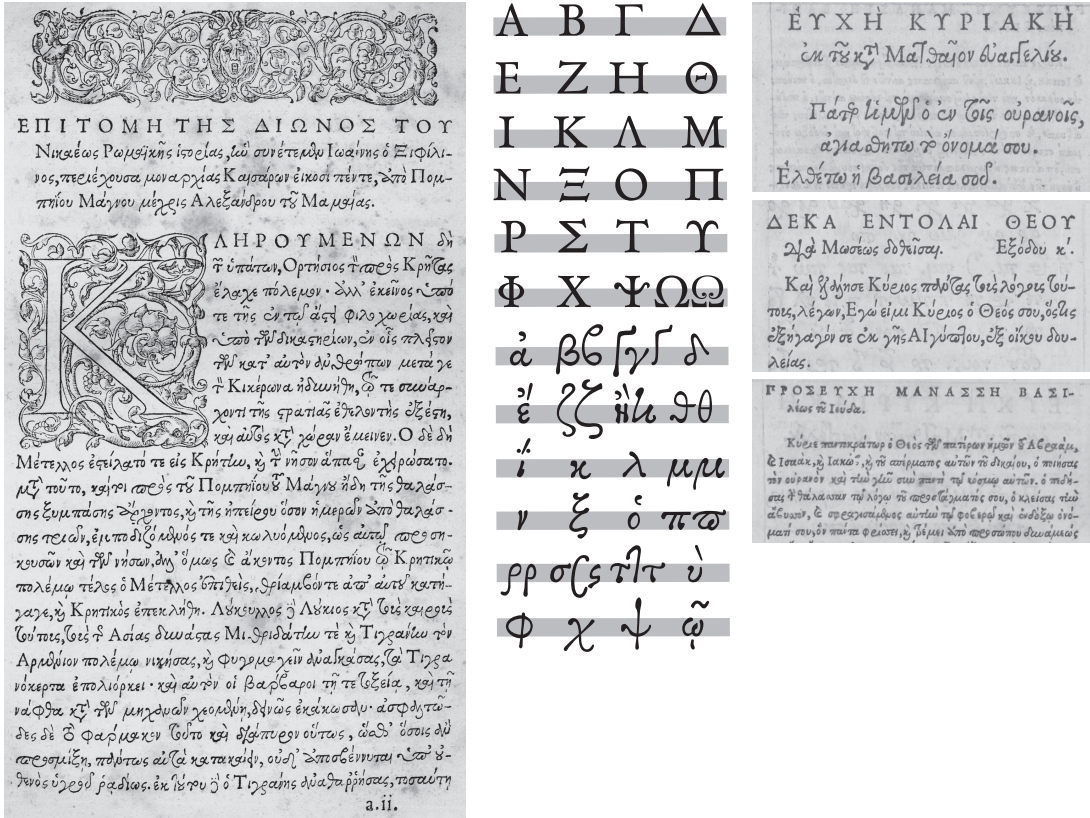 ΕΠΙΤΟΜΗ ΤΗΣ ΔΙΩΝΟΣ ΤΟΥ
Νικαέως Ρωμαϊκῆς ἱστορίας, ἣν συνέτεμεν Ιωαίνης ὁ Ξιφιλῖ-
νος, περιέχουσα μοναρχίας Καισάρων εἴκοσι πέντε, ἀπὸ Πομ-
πηΐου Μάγνου μέχρις Αλεξάνδρου τοῦ Μαμαίας.
ΚΛΗΡΟΥΜΕΝΩΝ δὴ
τῶν ὑπάτων, Ορτήσιος τὸν πρὸς Κρῆτας
ἔλαχε πόλεμον· ἀλλ' ἐκεῖνος ὑπό
τε τῆς ἐν τῷ ἄστει φιλοχωρίας, καὶ
ὑπὸ τῶν δικαστηρίων, ἐν οἷς πλεῖστον
τῶν κατ' αὐτὸν ἀνθρώπων μετά γε
τὸν Κικέρωνα ἠδυνήθη, τῷ τε συνάρ-
χοντι τῆς στρατιᾶς ἐθελοντὴς ἐξέστη,
καὶ αὐτὸς κατὰ χώραν ἔμεινεν. Ο δὲ δὴ
Μέτελλος ἐστείλατό τε εἰς Κρήτην, καὶ τὴν νῆσον ἅπασαν ἐχειρώσατο.
μετὰ τοῦτο, καίτοι πρὸς τοῦ Πομπηΐου τοῦ Μάγνου ἤδη τῆς θαλάσ-
σης ξυμπάσης ἄρχοντος, καὶ τῆς ἠπείρου ὅσον ἡμερῶν ἀπὸ θαλάσ-
σης τριῶν, ἐμποδιζόμενός τε καὶ κωλυόμενος, ὡς αὐτῷ προση-
κουσῶν καὶ τῶν νήσων, ἀλλ' ὅμως καὶ ἄκοντος Πομπηΐου τῷ Κρητικῷ
πολέμῳ τέλος ὁ Μέτελλος ἐπιθείς, θρίαμβόν τε ἀπ' αὐτοῦ κατή-
γαγε, καὶ Κρητικὸς ἐπεκλήθη. Λούκουλλος δὲ Λούκιος κατὰ τοὺς καιροὺς
τούτους, τοὺς τῆς Ασίας δυνάστας Μιθριδάτην τε καὶ Τιγράνην τὸν
Αρμένιον πολέμῳ νικήσας, καὶ φυγομαχεῖν ἀναγκάσας, τὰ Τιγρα
νόκερτα ἐπολιόρκει· καὶ αὐτὸν οἱ βάρβαροι τῇ τε τοξείᾳ, καὶ τῇ
νάφθᾳ κατὰ τῶν μηχανῶν χεομένῃ, δεινῶς ἐκάκωσαν. ἀσφαλτῶ-
δες δὲ τὸ φάρμακον τοῦτο καὶ διάπυρον οὕτως, ὥσθ' ὅσοις ἂν
προσμίξῃ, πάντως αὐτὰ κατακαίειν, οὐδ' ἀποσβέννυται ὑπ' οὐ-
θενὸς ὑγροῦ ῥᾳδίως. ἐκ τούτου δὲ ὁ Τιγράνης ἀναθαρρήσας, τοσαύτῃ
a.ii.
Α Β Γ Δ
Ε Ζ Η Θ
Ι Κ Λ Μ
Ν Ξ Ο Π
Ρ Σ Τ Υ
Φ Χ Ψ Ω Ω
ἀ βϐ γ δ
έ ζζ ἣ ϑθ
ἴ κ λ μμ
ν ξ ὁ πϖ
ρρ σς τ ὺ
φ χ ψ ῷ
ΕΥΧΗ ΚΥΡΙΑΚΗ
ἐκ τοῦ κατὰ Ματθαῖον εὐαγγελίου.
Πάτερ ἡμῶν ὁ ἐν τοῖς οὐρανοῖς,
ἁγιασθήτω τὸ ὄνομά σου.
Ἐλθέτω ἡ βασιλεία σοῦ.
ΔΕΚΑ ΕΝΤΟΛΑΙ ΘΕΟΥ
διὰ Μωσέως δοθεῖσαι. Εξόδου κ'.
Καὶ ἐλάλησε Κύριος πάντας τοὺς λόγους τού-
τους, λέγων, Εγώ εἰμι Κύριος ὁ Θεός σου, ὅστις
ἐξήγαγόν σε ἐκ γῆς ΑΙγύπτου, ἐξ οἴκου δου-
λείας.
ΠΡΟΣΕΥΧΗ ΜΑΝΑΣΣΗ ΒΑΣΙ-
λέως τοῦ Ιούδα.
Κύριε παντοκράτωρ ὁ Θεὸς τῶν πατέρων ἡμῶν τοῦ Αβραάμ,
καὶ Ισαὰκ, καὶ Ιακώβ, καὶ τοῦ σπέρματος αὐτῶν τοῦ δικαίου, ὁ ποιήσας
τὸν οὐρανὸν καὶ τὴν γῆν σὺν παντὶ τῷ κόσμῳ αὐτῶν. ὁ πεδή-
σας τὴν θάλασσαν τῷ λόγῳ τοῦ προστάγματός σου, ὁ κλείσας τὴν
ἄβυσσον, καὶ σφραγισάμενος αὐτὴν τῷ φοβερῷ καὶ ἐνδόξῳ ὀνό-
ματί σου, ὃν πάντα φρίσσει, καὶ τρέμει ἀπὸ προσώπου δυνάμεως